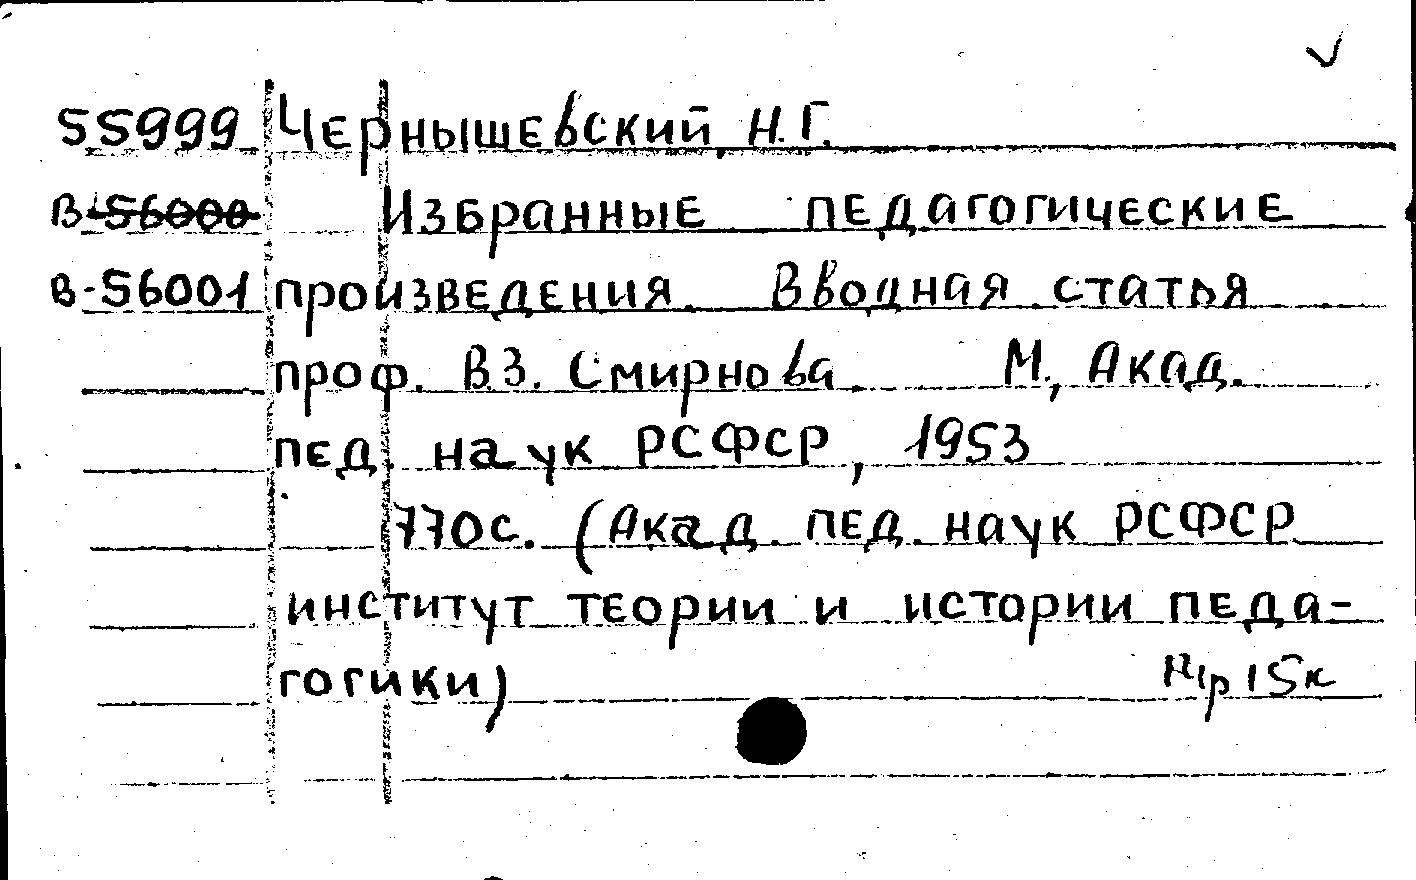 55999 Чернышевский Н.Г.
В-56000 Избранные педагогические
В-56001 произведения. Вводная статья
проф. В.З. Смирнова. М., Акад.
пед. наук РСФСР, 1953
770с. (Акад. пед. наук РСФСР
институт теории и истории педа-
гогики)
15к